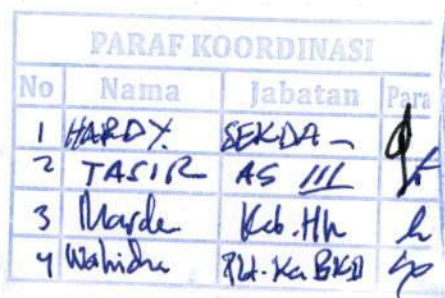 PARAF KOORDINASI
No Nama Jabatan Para
1 HARDY. SEKDA -
2 TASIR AS III
3 Marde Kab. Hk
4 Wahidra Plt. Ka BKD